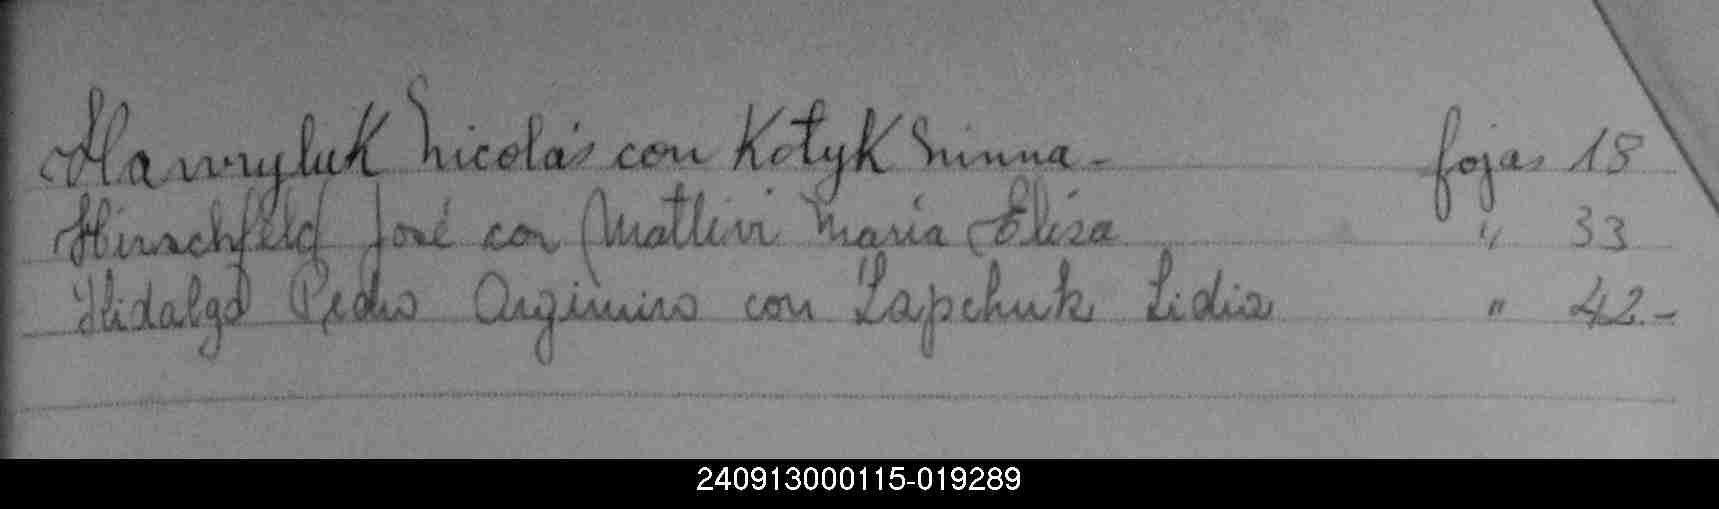 Hawryluk Nicolás con Kotyk Ninna - fojas 18
Hirschfeld José con Matlivi Maria Elisa " 33
Hidalgo Pedro Argimiro con Lapchuk Lidia " 42.-
240913000115-019289